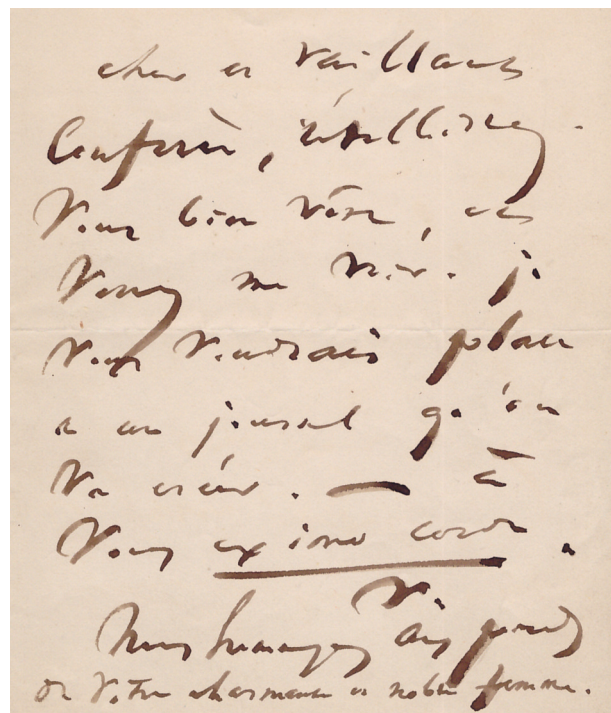 cher et vaillant
Confrère, rétablissez
Vous bien vite, et
Venez me voir. je
Vous voudrais placer
à un journal qu'on
Va créer. — à
Vous ex imo corde.
V.
Mes hommages aux pieds
de votre charmante et noble femme.